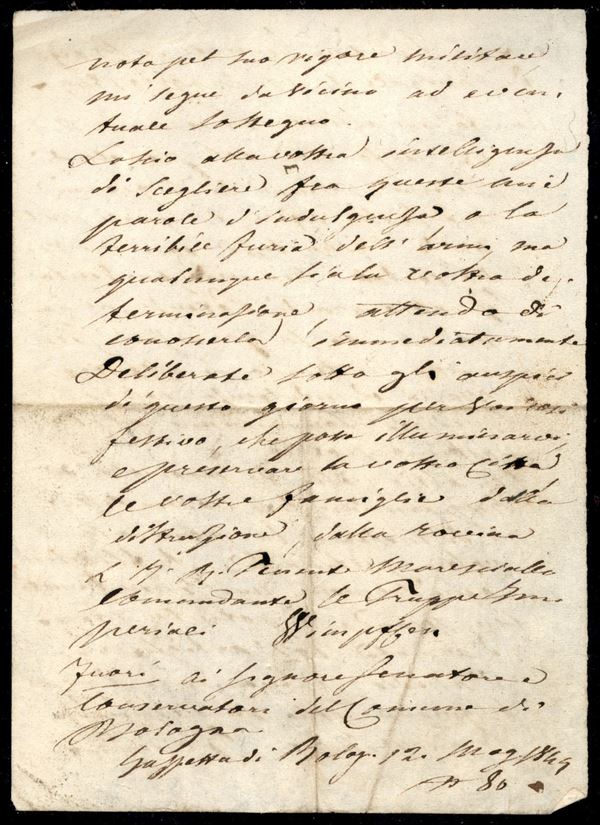 nota pel suo vigore militare
mi segue da vicino ad even
tuale sostegno.
Lascio alla vostra intelligenza
di scegliere fra queste mie
parole d'indulgenza o la
terribile furia dell'armi, ma
qualunque sia la vostra de-
terminazione attendo di
conoscerla immediatamente
Deliberate sotto gli auspici
di questo giorno per voi così
festivo, che possa illuminarvi,
e preservare la vostra Città
le vostre famiglie dalla
distruzione, dalla rovina
I. R. Tenente Maresciallo
Comandante le Truppe Im
periali Wimpffen
Fuori ai Signori Senatore e
Conservatori del Comune di
Bologna
Gazzetta di Bolog. 12. Mag 1849
N 80